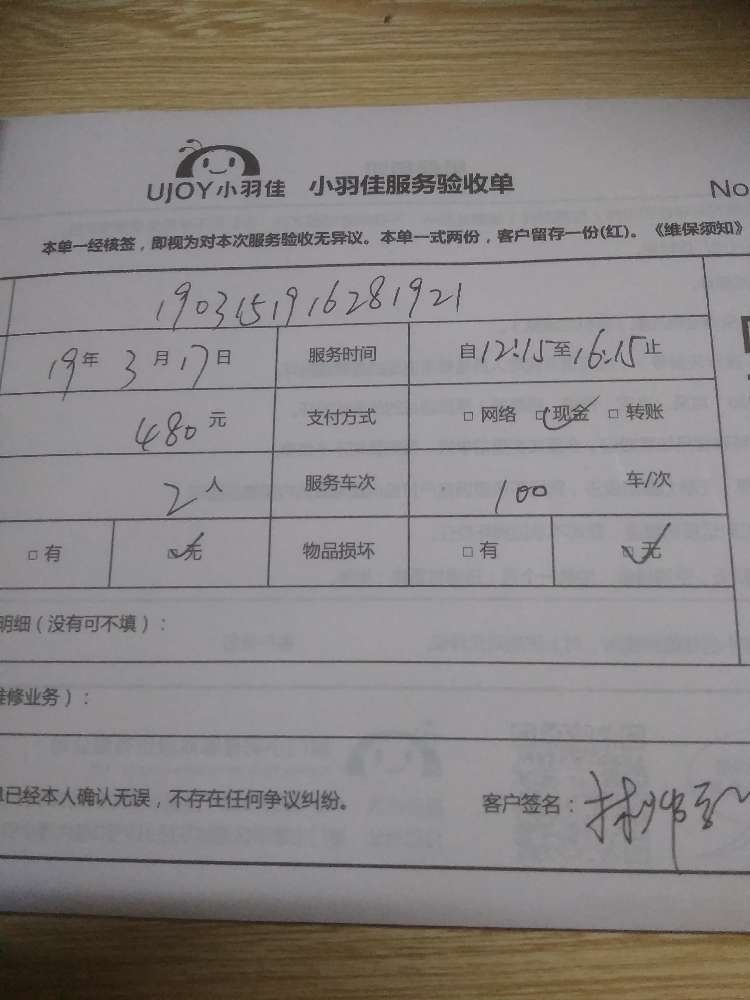 UJOY小羽佳 小羽佳服务验收单 No
本单一经核签，即视为对本次服务验收无异议。本单一式两份，客户留存一份(红)。《维保须知》
1903151916281921
19年 3月17日 服务时间 自12:15至16:15止
480元 支付方式 □ 网络 □ 现金 □ 转账
2人 服务车次 100 车/次
□ 有 □ 无 物品损坏 □ 有 □ 无
明细（没有可不填）：
维修业务）：
已经本人确认无误，不存在任何争议纠纷。 客户签名：